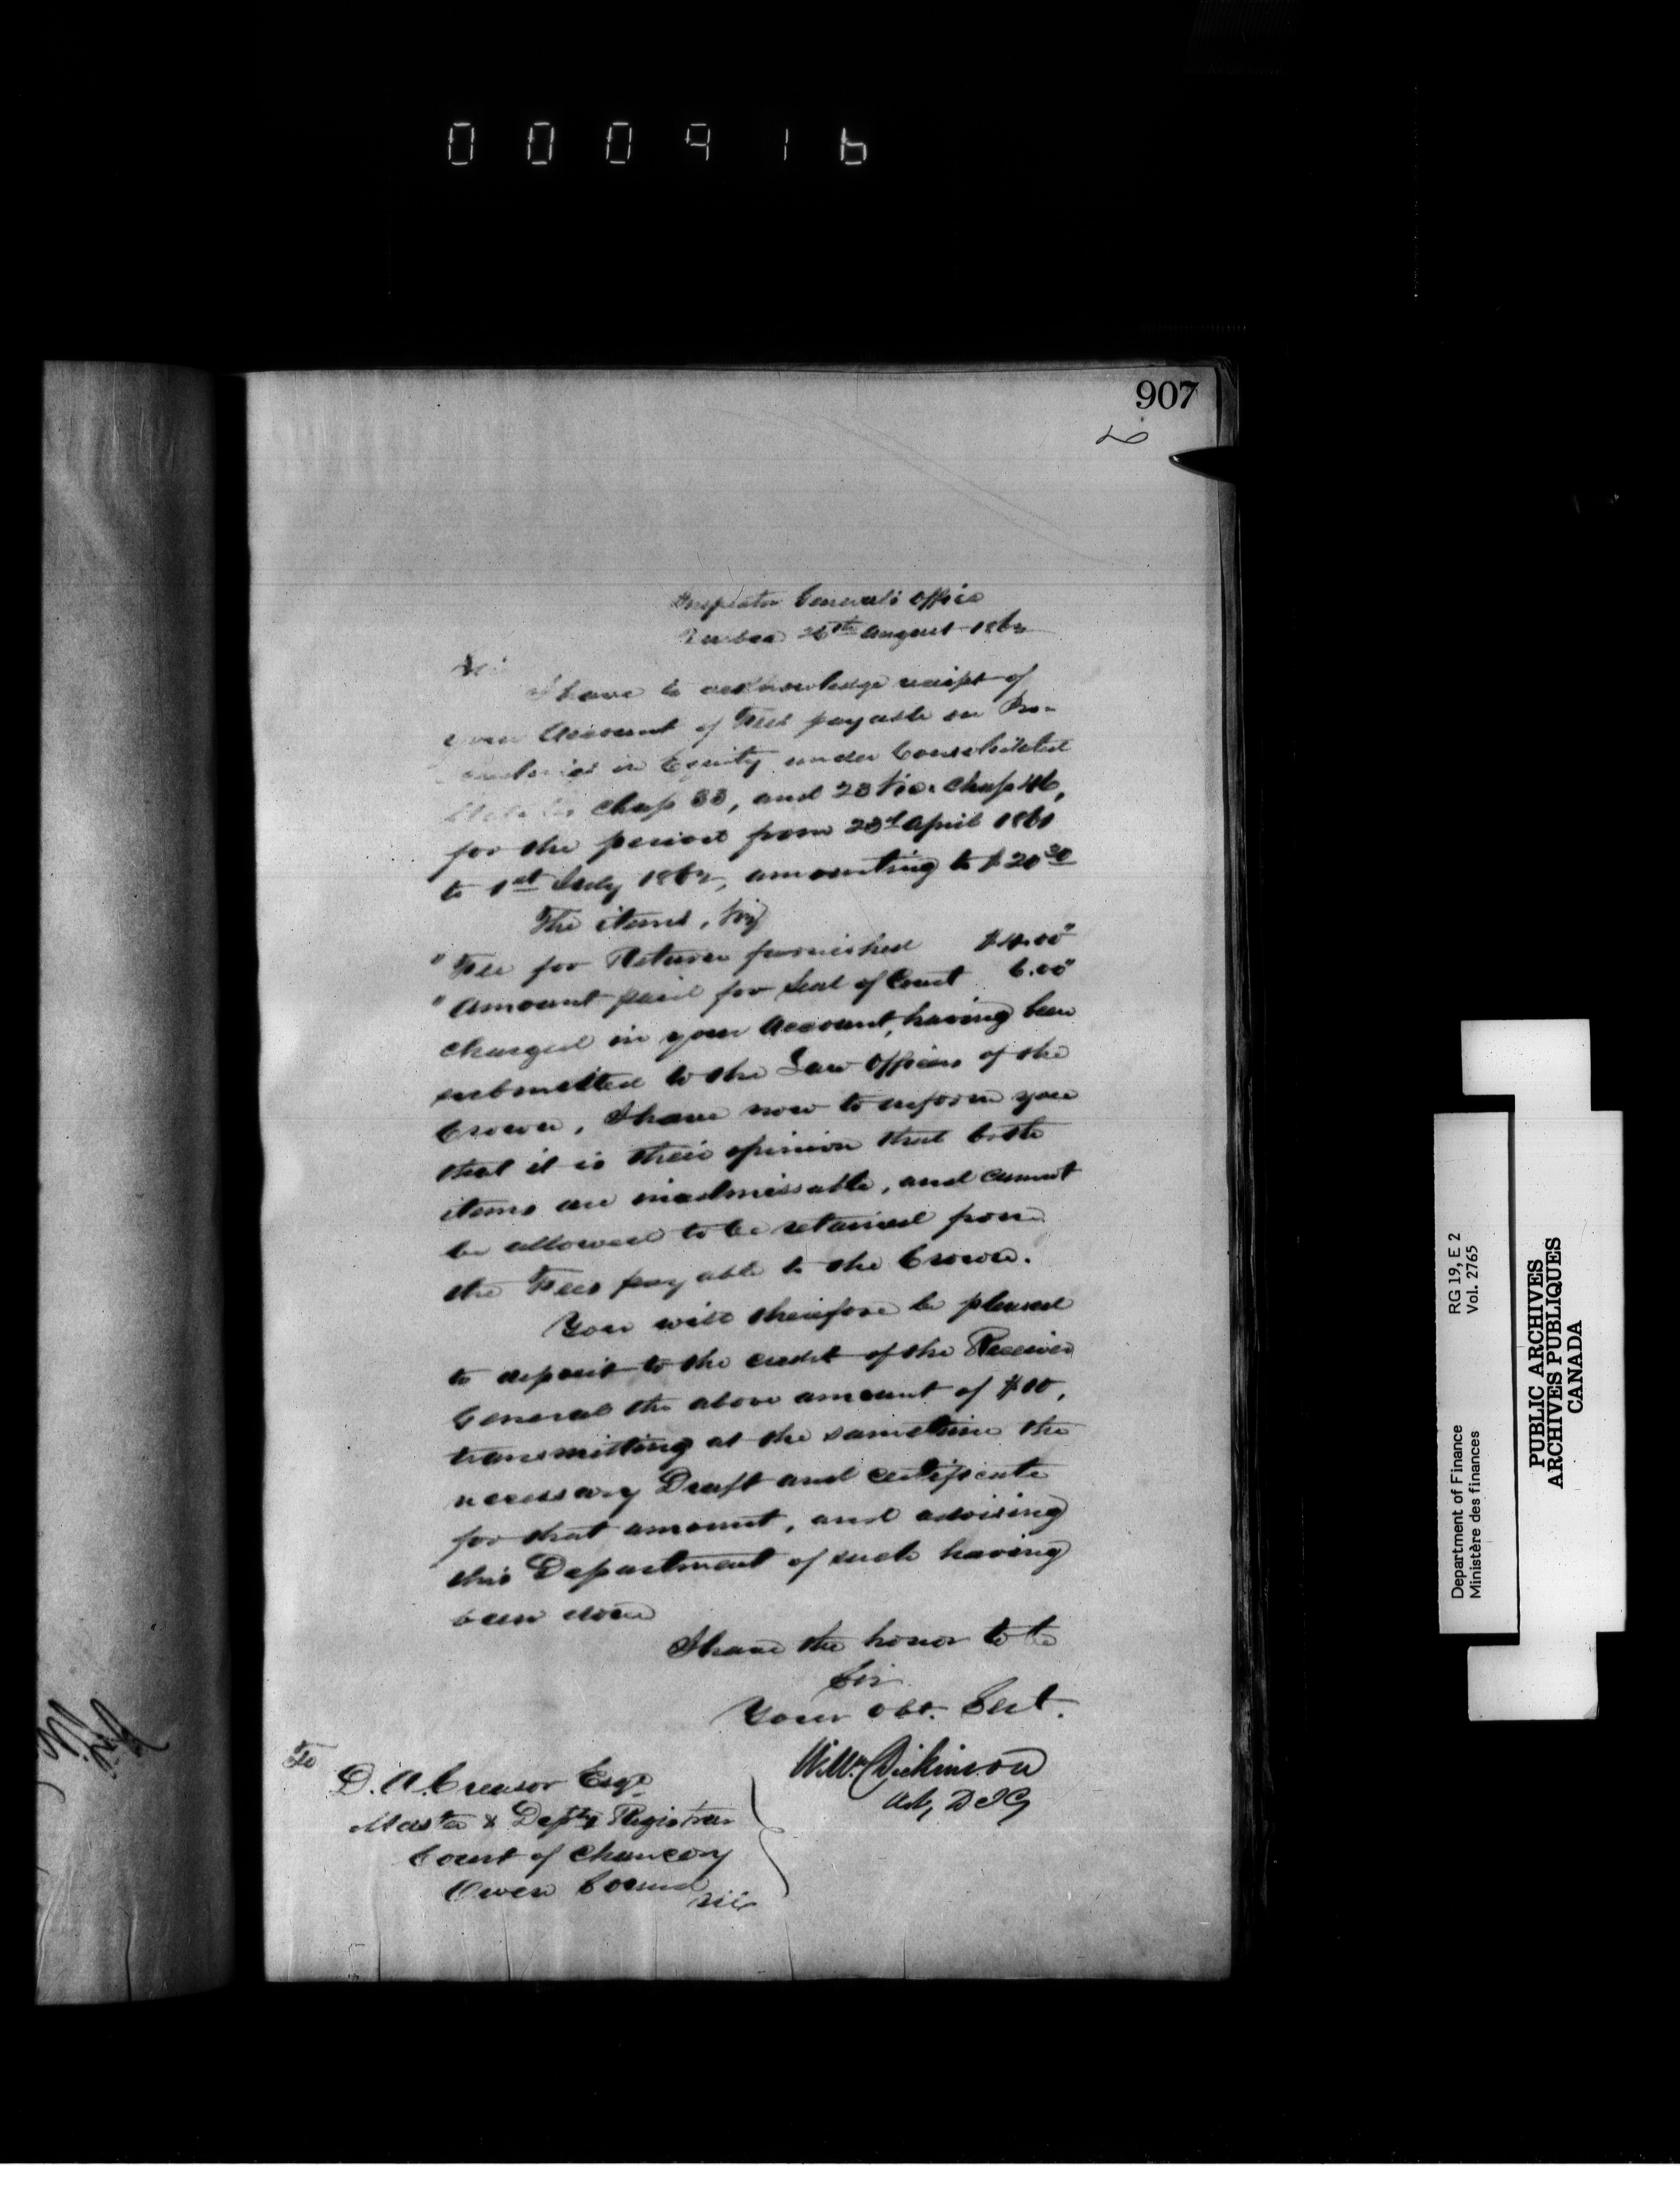 000916
907
Inspector General's Office
Quebec 26th August 1862
Sir
I have to acknowledge receipt of
your Account of Fees payable on Pro-
ceedings in Equity under Consolidated
Statutes Chap 33, and 23 Vic. Chap 46,
for the period from 23d April 1861
to 1st July 1862, amounting to $20 30
The items, viz
" Fee for Returns furnished $4.00"
" Amount paid for Seal of Court 6.00"
charged in your Account, having been
submitted to the Law Officers of the
Crown, I have now to inform you
that it is their opinion that both
items are inadmissable, and cannot
be allowed to be retained from
the Fees payable to the Crown.
You will therefore be pleased
to deposit to the credit of the Receiver
General the above amount of $10,
transmitting at the same time the
necessary Draft and certificate
for that amount, and advising
this Department of such having
been done
I have the honor to be
Sir
Your Obt. Sert.
Wm Dickinson
Actg D I G
To
D. A. Creasor Esqr
Master & Depty Registrar
Court of Chancery
Owen Sound
Department of Finance RG 19, E 2
Ministère des finances Vol. 2765
PUBLIC ARCHIVES
ARCHIVES PUBLIQUES
CANADA